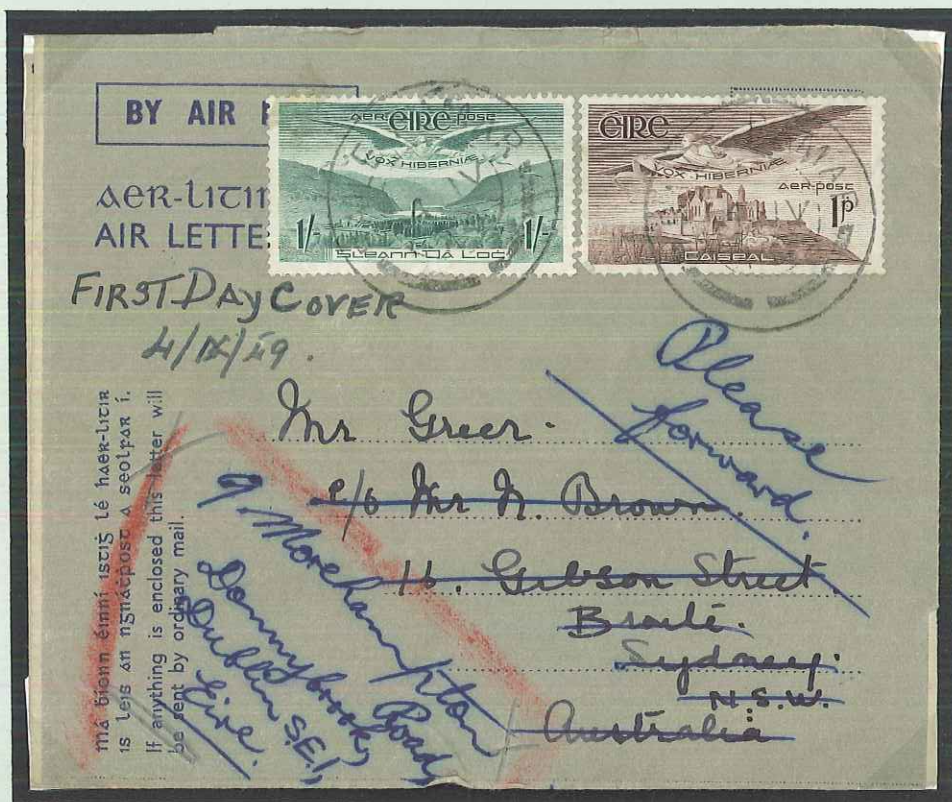 BY AIR
AER-LITIR
AIR LETTE
AER EIRE POST
VOX HIBERNIÆ
1/- 1/-
GLEANN DÁ LOC
EIRE
VOX HIBERNIÆ
AER-POST
1p
CAISEAL
FIRST DAY COVER
4/IX/49.
Please
forward.
Mr Greer.
c/o Mr N. Brown.
16. Gibson Street
Sydney.
N.S.W.
Australia
9. Morehampton
Road,
Donnybrook,
Dublin S.E.1,
Eire.
má bíonn éinní istiġ lé haer-litir
is leis an ngnátpost a seolfar í.
If anything is enclosed this letter will
be sent by ordinary mail.